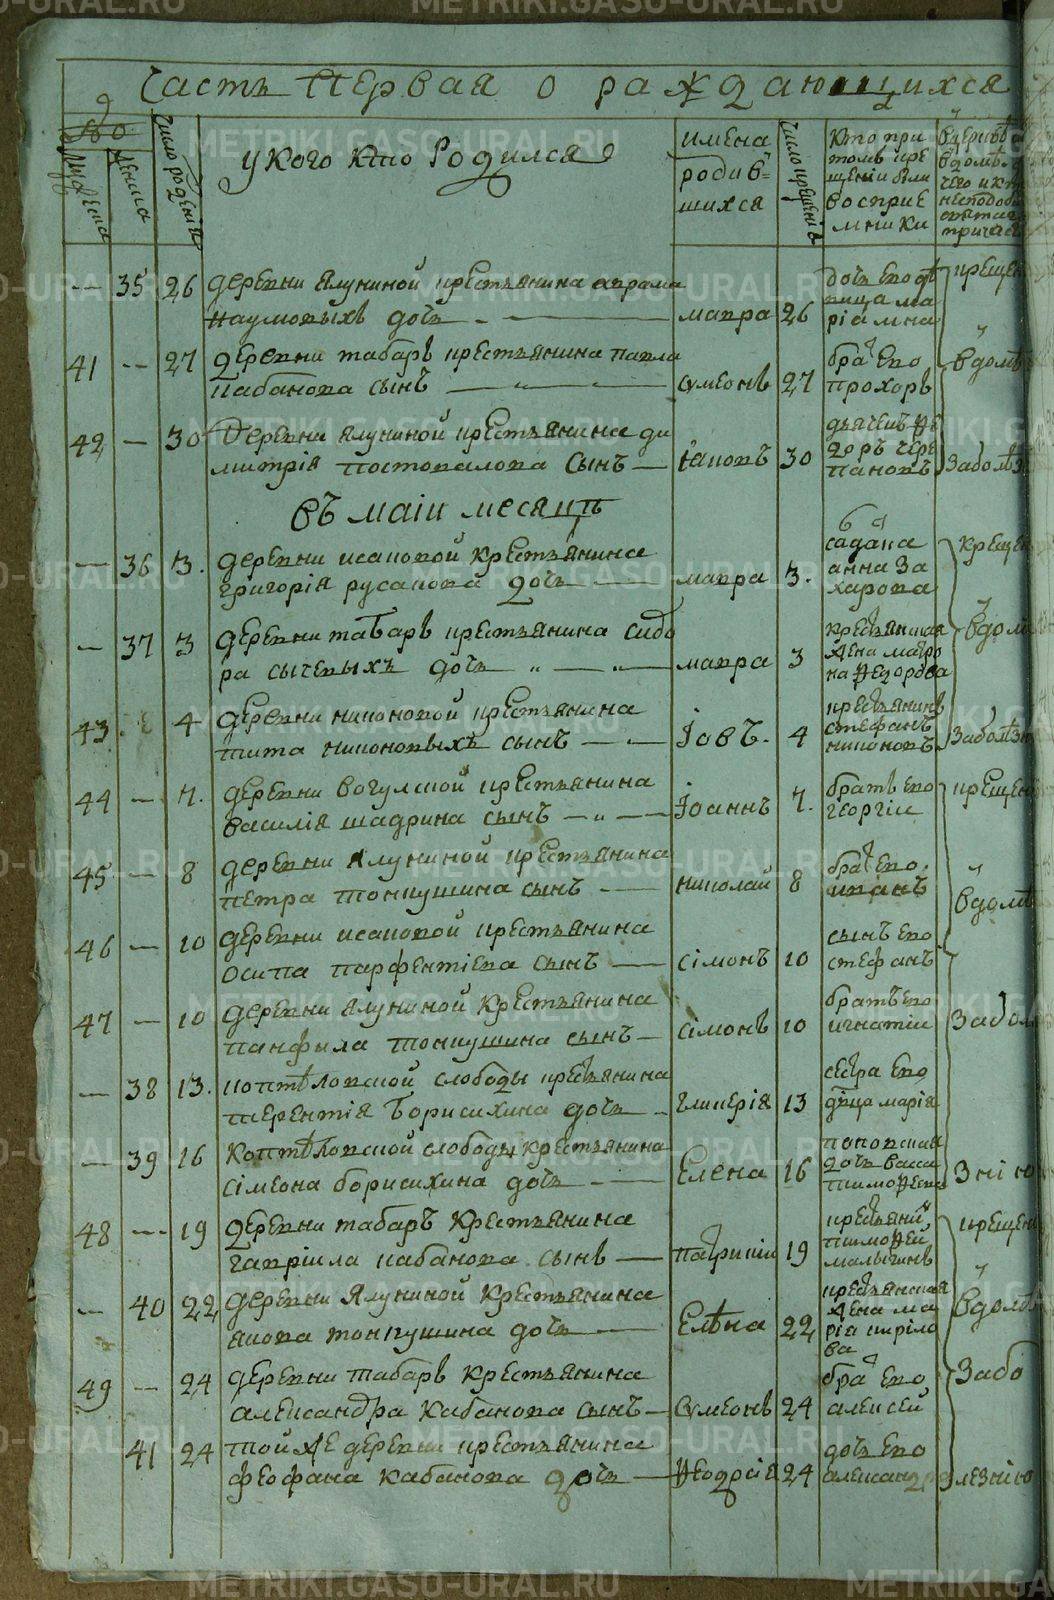 Часть первая о раждающихся
№
Мужеска
Женска
Число рожденія
у кого кто родился
имена родившихся
Число крещенія
кто при томъ крещеніи были восприемники
35 26 деревни Ялуниной крестьянина аврама
наумовыхъ дочь мавра 26 дочь ево девица маріамна
41 27 деревни табаръ крестьянина павла
кабанова сынъ сумеонъ 27 братъ ево прохоръ
42 30 Деревни Ялуниной крестьянина ди
митрія постовалова сынъ іаковъ 30 дьячекъ Ѳедоръ черепановъ
въ маіи месяцѣ
36 3. деревни исаковой крестьянина
григорія русакова дочь мавра 3. анна захарова
37 3 деревни табаръ крестьянина сидо
ра сычевыхъ дочь мавра 3 крестьянская жена матрона Ѳедорова
43 4 деревни никоновой крестьянина
тита никоновыхъ сынъ Іовъ. 4 крестьянинъ стефанъ никоновъ
44 7. деревни вогулской крестьянина
василія шадрина сынъ Іоаннъ 7. братъ ево георгіи
45 8 деревни Ялуниной крестьянина
петра тонкушина сынъ николай 8 братъ ево иванъ
46 10 деревни исаковой крестьянина
осипа парфентіева сынъ сімонъ 10 сынъ ево стефанъ
47 10 деревни Ялуниной крестьянина
панфила тонкушина сынъ сімонъ 10 братъ ево игнатіи
38 13. коптѣловской слободы крестьянина
терентія борисихина дочь гликерія 13 сестра ево дѣвица марія
39 16 Коптѣловской слободы крестьянина
сімеона борисихина дочь Елена 16 поповская дочь васса тимоѲеева
48 19 деревни табаръ крестьянина
гавріила кабанова сынъ патрикіи 19 крестьянинъ тимоѲей малыгинъ
40 22 деревни Ялуниной крестьянина
якова тонкушина дочь Елѣна 22 крестьянская жена марія кирілова
49 24 деревни табаръ крестьянина
александра кабанова сынъ сумеонъ 24 братъ ево алексей
41 24 той же деревни крестьянина
феофана кабанова дочь Ѳеодосія 24 дочь ево александра
METRIKI.GASO-URAL.RU